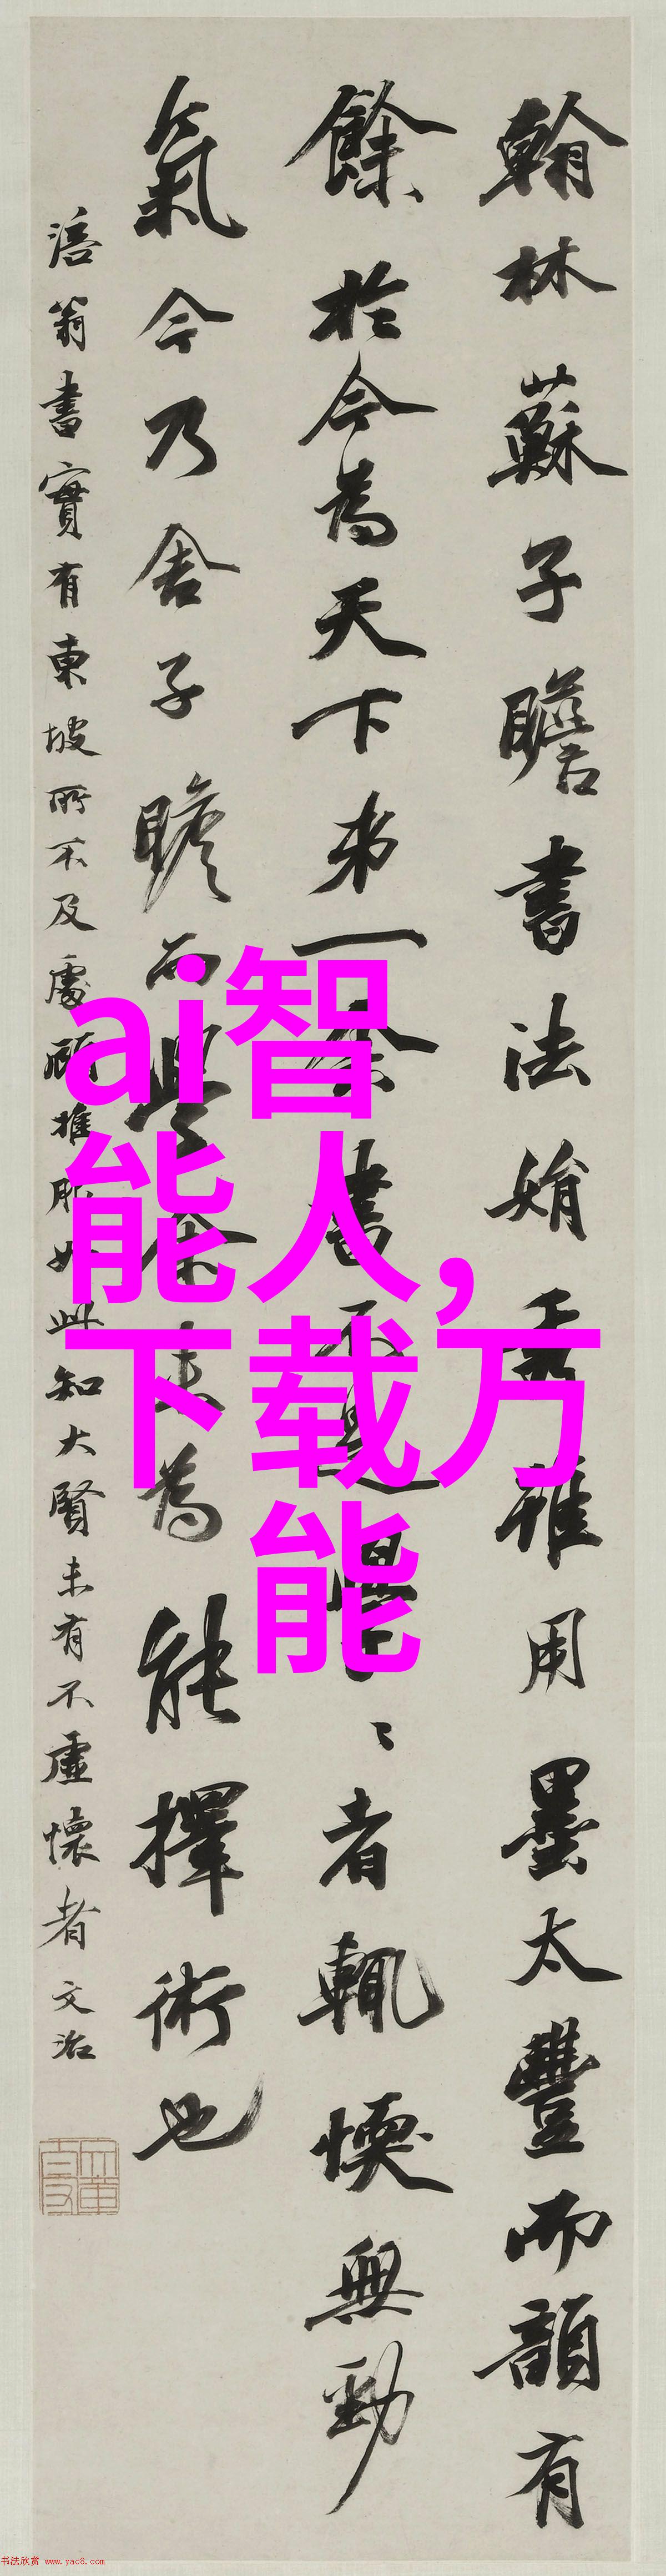 翰林蘇子瞻書法娟秀雖用墨太豐而韻有
餘於今為天下第一余書不足學〻者輒愞無勁
氣今乃舍子瞻而學余未為能擇術也
涪翁書實有東坡所不及處顧推服如此知大賢未有不虛懷者文治
ai智
能人,
下载万
能
书法欣赏 www.yac8.com